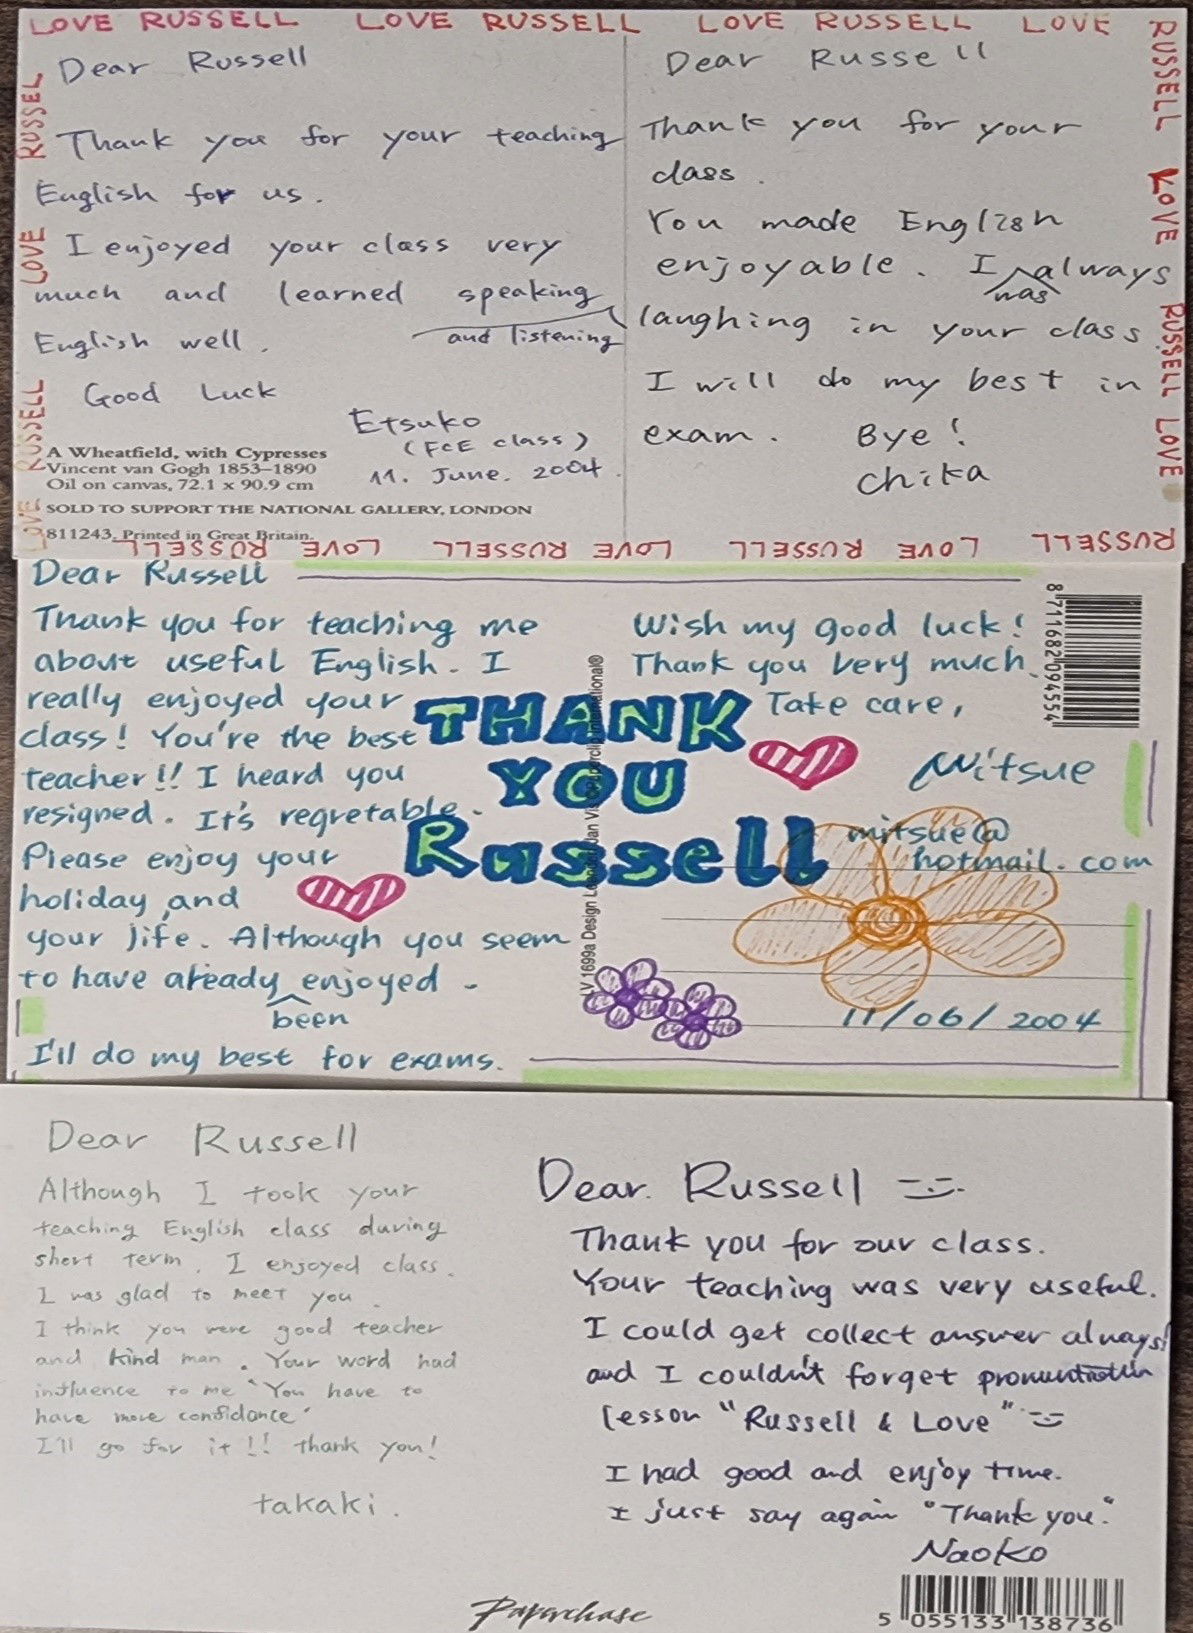 LOVE RUSSELL LOVE RUSSELL LOVE RUSSELL LOVE
RUSSELL LOVE RUSSELL LOVE
RUSSELL LOVE RUSSELL LOVE RUSSELL LOVE RUSSELL
LOVE RUSSELL LOVE RUSSEL
Dear Russell
Thank you for your teaching
English for us.
I enjoyed your class very
much and learned speaking
and listening
English well.
Good Luck
Etsuko
(FCE class)
11. June. 2004.
A Wheatfield, with Cypresses
Vincent van Gogh 1853–1890
Oil on canvas, 72.1 x 90.9 cm
SOLD TO SUPPORT THE NATIONAL GALLERY, LONDON
811243. Printed in Great Britain.
Dear Russell
Thank you for your
class.
You made English
enjoyable. I always
was
laughing in your class.
I will do my best in
exam. Bye!
Chika
Dear Russell
Thank you for teaching me
about useful English. I
really enjoyed your
class! You're the best
teacher!! I heard you
resigned. It's regretable.
Please enjoy your
holiday and
your life. Although you seem
to have already enjoyed.
been
I'll do my best for exams.
THANK
YOU
Russell
LV 1699a Design London/Jan Vis ©Paperclip International®
Wish my good luck!
Thank you very much.
Take care,
Mitsue
mitsue@
hotmail.com
11/06/2004
8 711682 094554
Dear Russell
Although I took your
teaching English class during
short term. I enjoyed class.
I was glad to meet you.
I think you were good teacher
and kind man. Your word had
influence to me "You have to
have more confidance"
I'll go for it!! thank you!
takaki.
Dear. Russell
Thank you for our class.
Your teaching was very useful.
I could get collect answer always!
and I couldn't forget
lesson "Russell & Love"
I had good and enjoy time.
I just say again "Thank you."
Naoko
Paperchase
5 055133 138736